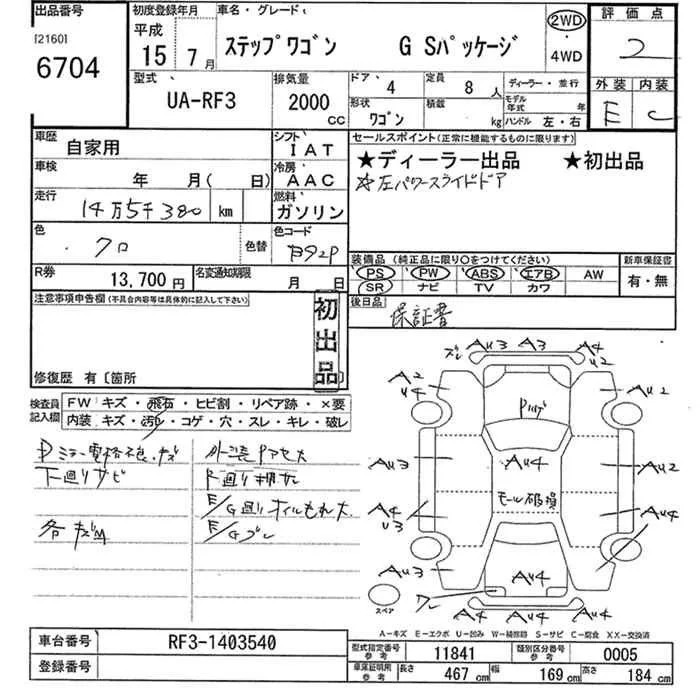 出品番号
[2160]
6704
初度登録年月
平成
15年 7月
車名・グレード
ステップワゴン G Sパッケージ
2WD
・
4WD
評価点
2
外装 内装
E C
型式
UA-RF3
排気量
2000 CC
ドア 4
定員 8人
ディーラー・並行
形状 ワゴン
積載 kg
モデル年式 年
ハンドル 左・右
車歴 自家用
シフト IAT
車検 年 月( 日)
冷房 AAC
走行 14万5千380 km
燃料 ガソリン
色 クロ
色替
色コード B92P
R券 13,700円
名変通知期限 月 日
セールスポイント(正常に機能するものに限ります)
★ディーラー出品 ★初出品
☆左パワースライドドア
装備品(純正品に限り○をつけてください)
PS PW ABS エアB AW
SR ナビ TV カワ
新車保証書
有・無
後日品
保証書
注意事項申告欄(不具合内容等は具体的に記入して下さい)
初出品
修復歴 有〔箇所
検査員記入欄
FW キズ・飛石・ヒビ割・リペア跡・×要
内装 キズ・汚レ・コゲ・穴・スレ・キレ・破レ
Dミラー電格不良.キズ
外装アセ大
下廻りサビ
E/G廻りオイルもれ大
各キズM
E/Gブレ
ズレ
AU3 A3 A4
U2
A2
U4
AU2
AU3
AU4
AU2
モール破損
A4
U3
AU4
AU3
AU4
A4 AU4 A4
スペア
A-キズ E-エクボ U-凹み W-補修跡 S-サビ C-腐食 XX-交換済
車台番号 RF3-1403540
登録番号
型式指定番号 参考 11841
類別区分番号 参考 0005
車庫証明用 参考 長さ 467 cm 幅 169 cm 高さ 184 cm